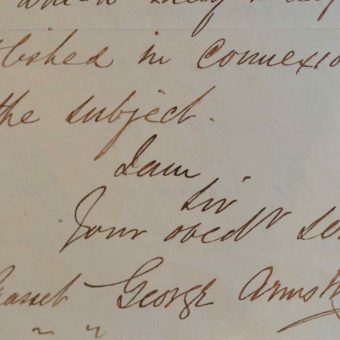 tlished in connexio
the subject.
I am
Sir
Your obedt se
George Armst